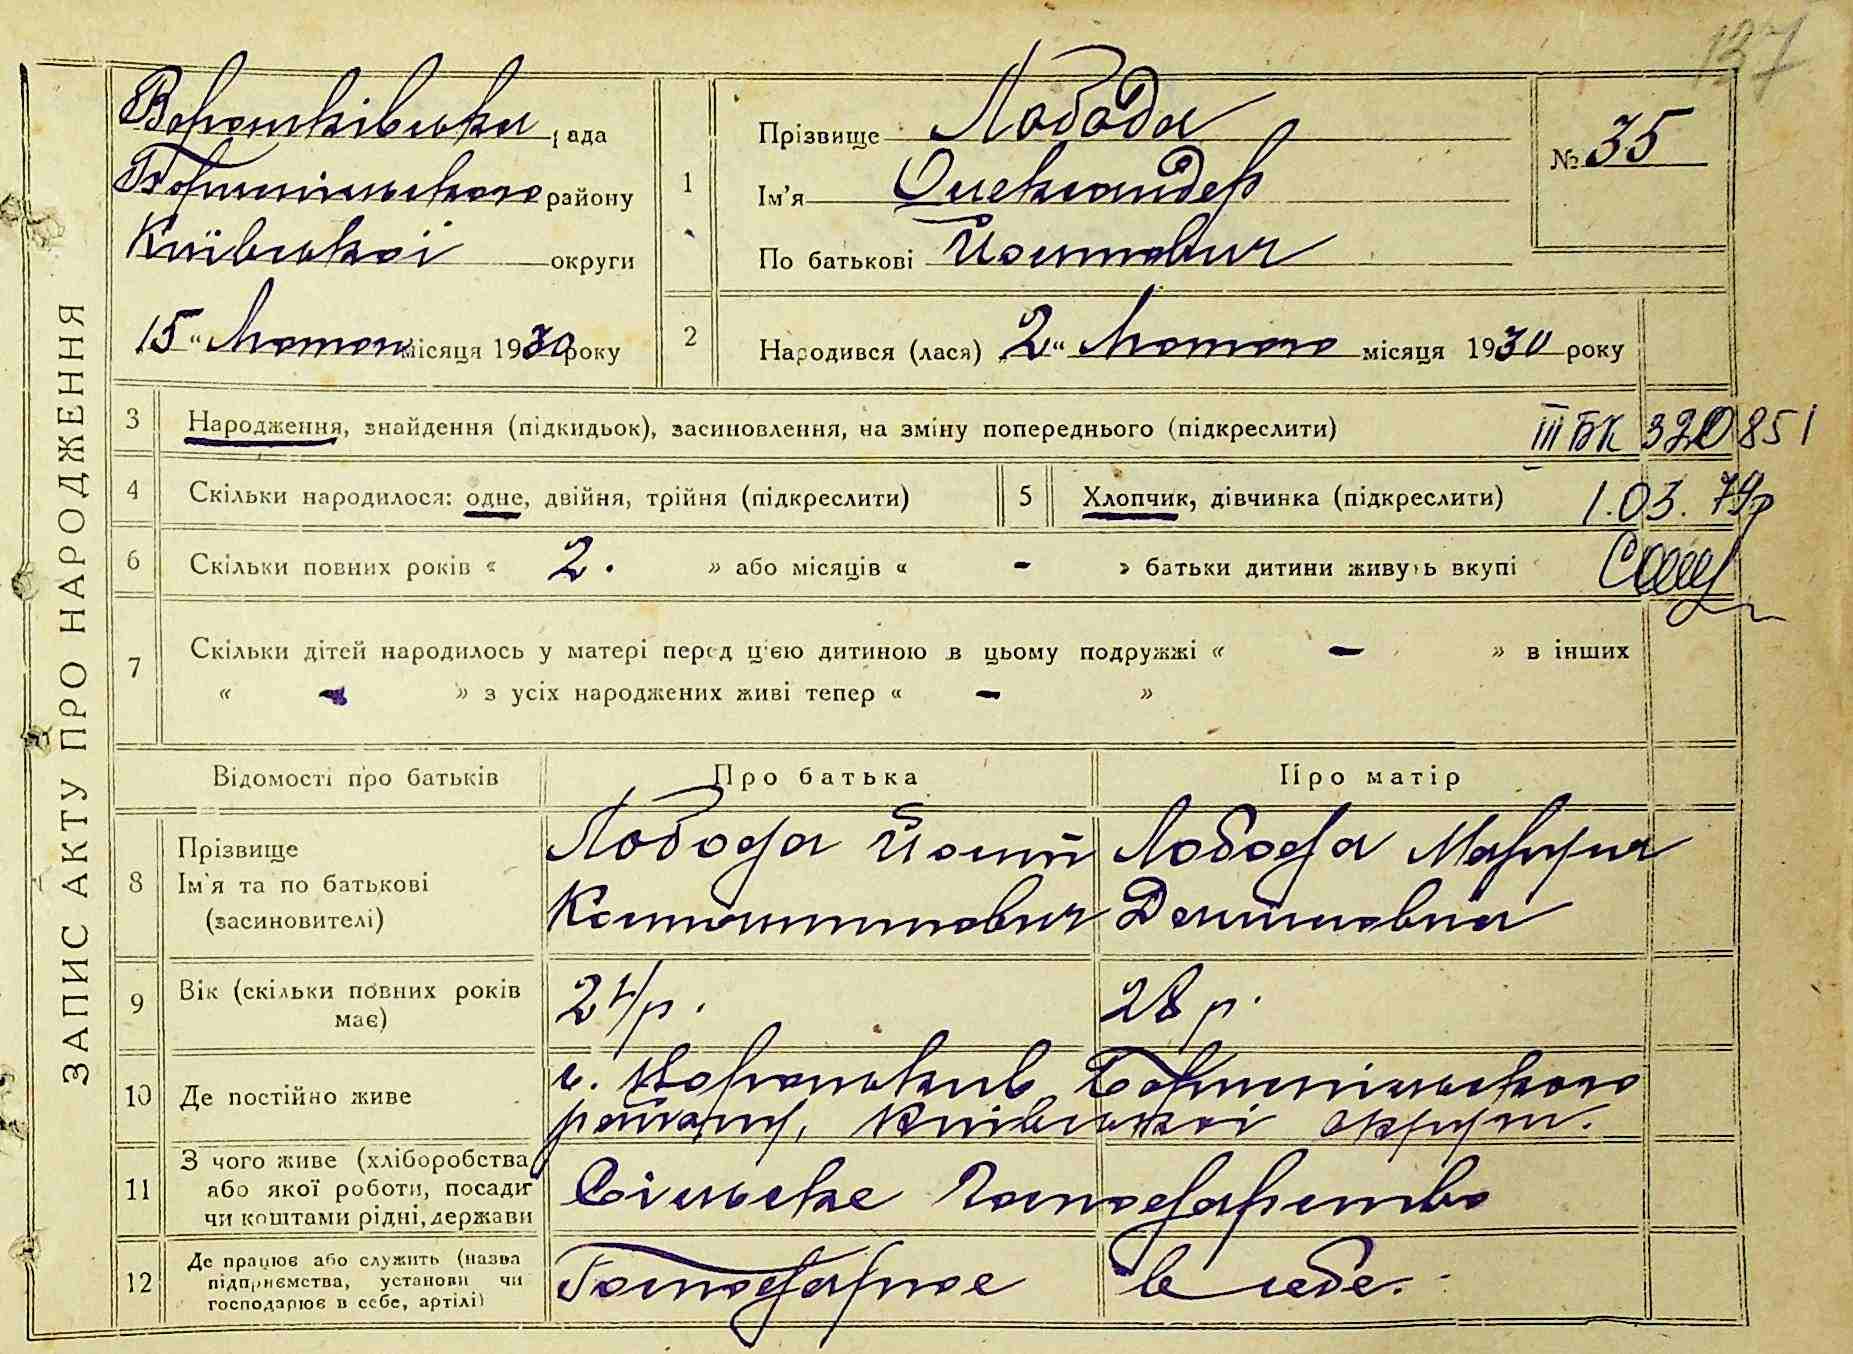 137
ЗАПИС АКТУ ПРО НАРОДЖЕННЯ
Вороньківська рада
Бориспільського району
Київської округи
15 " Лютого місяця 1930 року
1
Прізвище Лобода
Ім'я Олександер
По батькові Йостович
№ 35
2
Народився (лася) „ 2 " Лютого місяця 1930 року
3 Народження, знайдення (підкидьок), засиновлення, на зміну попереднього (підкреслити) III БК 320851
4 Скільки народилося: одне, двійня, трійня (підкреслити) 5 Хлопчик, дівчинка (підкреслити) 1.03.79р
6 Скільки повних років « 2. » або місяців « - » батьки дитини живуть вкупі
7
Скільки дітей народилось у матері перед цією дитиною в цьому подружжі « - » в інших
« - » з усіх народжених живі тепер « - »
Відомості про батьків Про батька Про матір
8
Прізвище
Ім'я та по батькові
(засиновителі)
Лобода Йост
Костянтинович
Лобода Маруся
Денисовна
9 Вік (скільки повних років
має)
24 р. 28 р.
10 Де постійно живе
с. Вороньків Бориспільського
району, Київської округи.
11
З чого живе (хліборобства
або якої роботи, посади
чи коштами рідні, держави
Сільске Господарство
12
Де працює або служить (назва
підприємства, установи чи
господарює в себе, артілі)
Господарює в себе.